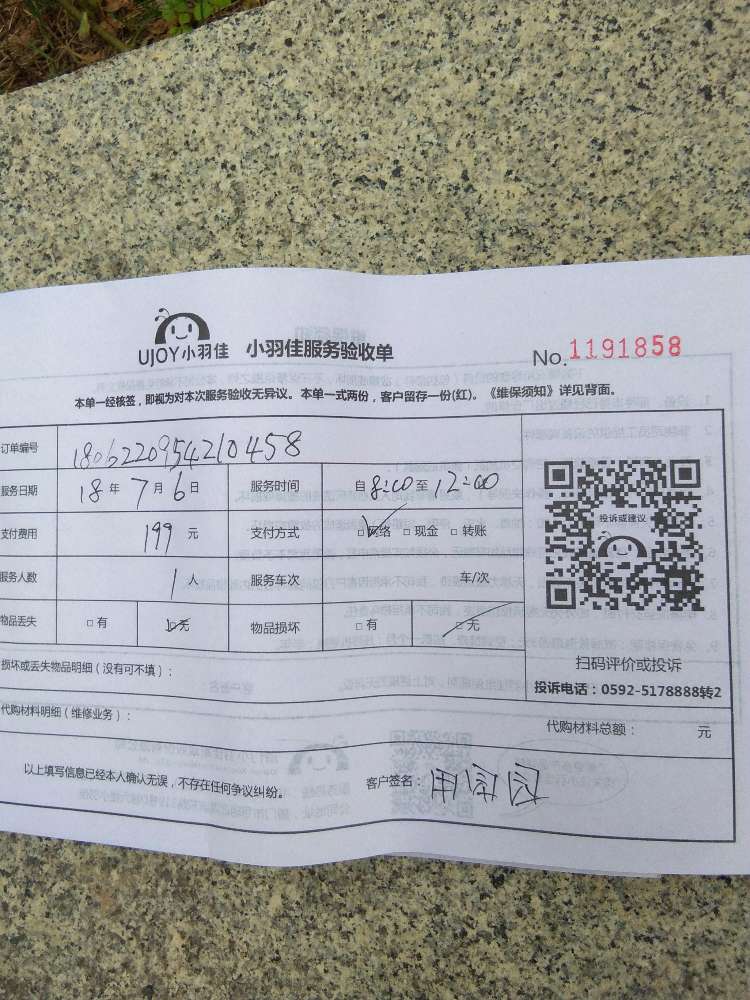 UJOY小羽佳 小羽佳服务验收单 No.1191858
本单一经核签，即视为对本次服务验收无异议。本单一式两份，客户留存一份(红)。《维保须知》详见背面。
订单编号 1806220954210458
服务日期 18年7月6日 服务时间 自8:00至12:00
支付费用 199元 支付方式 □网络 □现金 □转账
服务人数 1人 服务车次 车/次
物品丢失 □有 □无 物品损坏 □有 □无
投诉或建议
扫码评价或投诉
投诉电话：0592-5178888转2
损坏或丢失物品明细（没有可不填）：
代购材料明细（维修业务）： 代购材料总额： 元
以上填写信息已经本人确认无误，不存在任何争议纠纷。 客户签名：